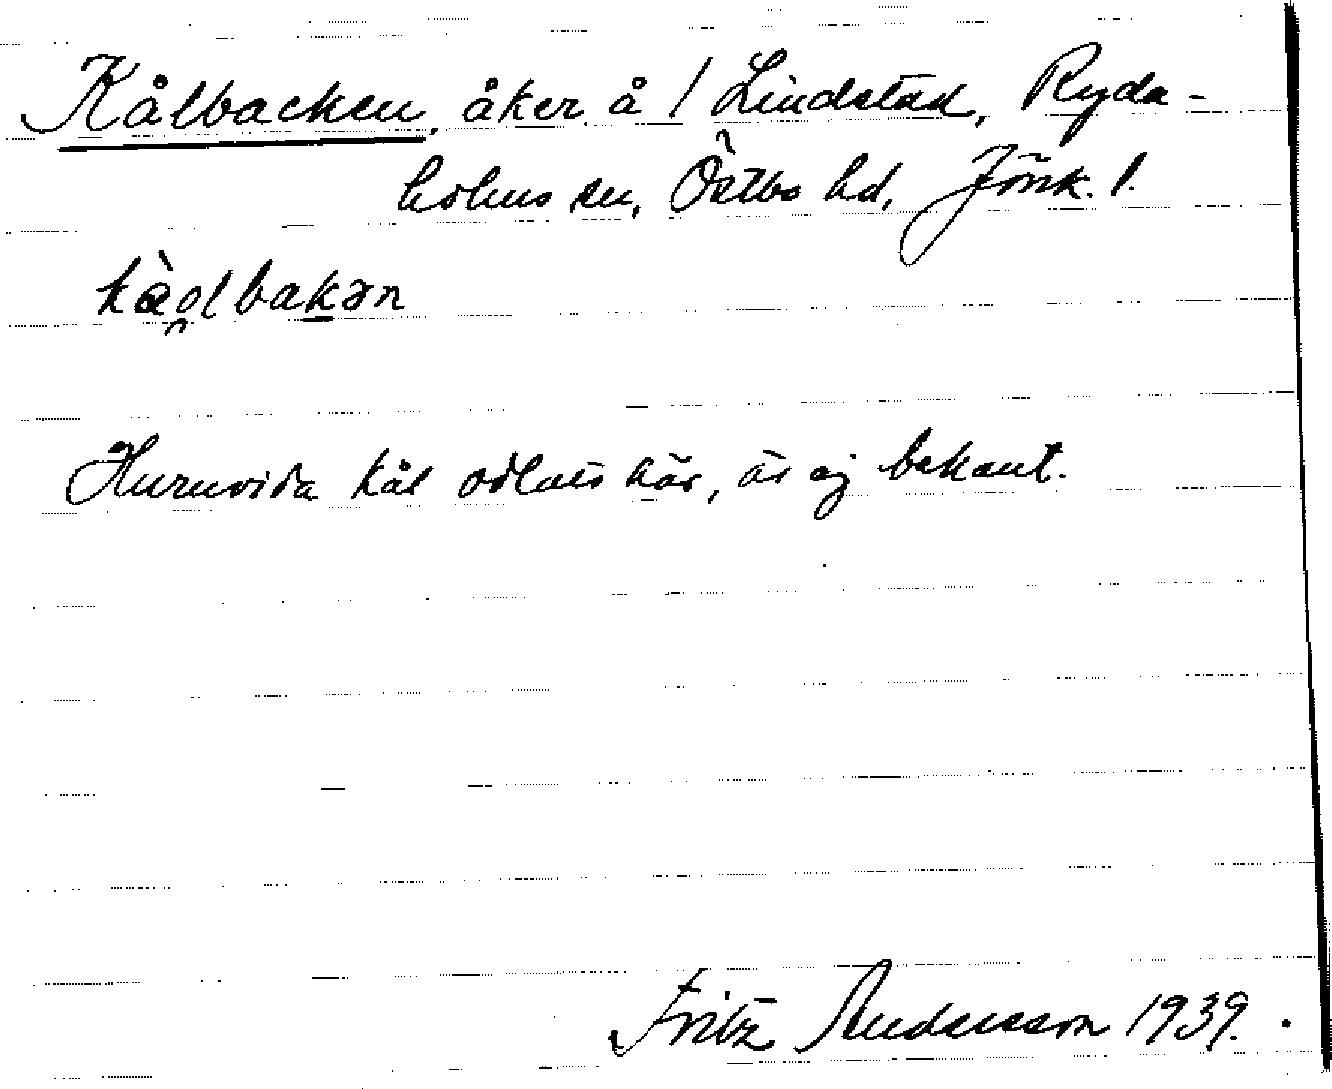 Kålbacken, åker å 1 Lindstad, Ryda-
holms sn, Östbo hd, Jönk. l.
kàolbakən
Huruvida kål odlats här, är ej bekant.
Fritz Andersson 1939.